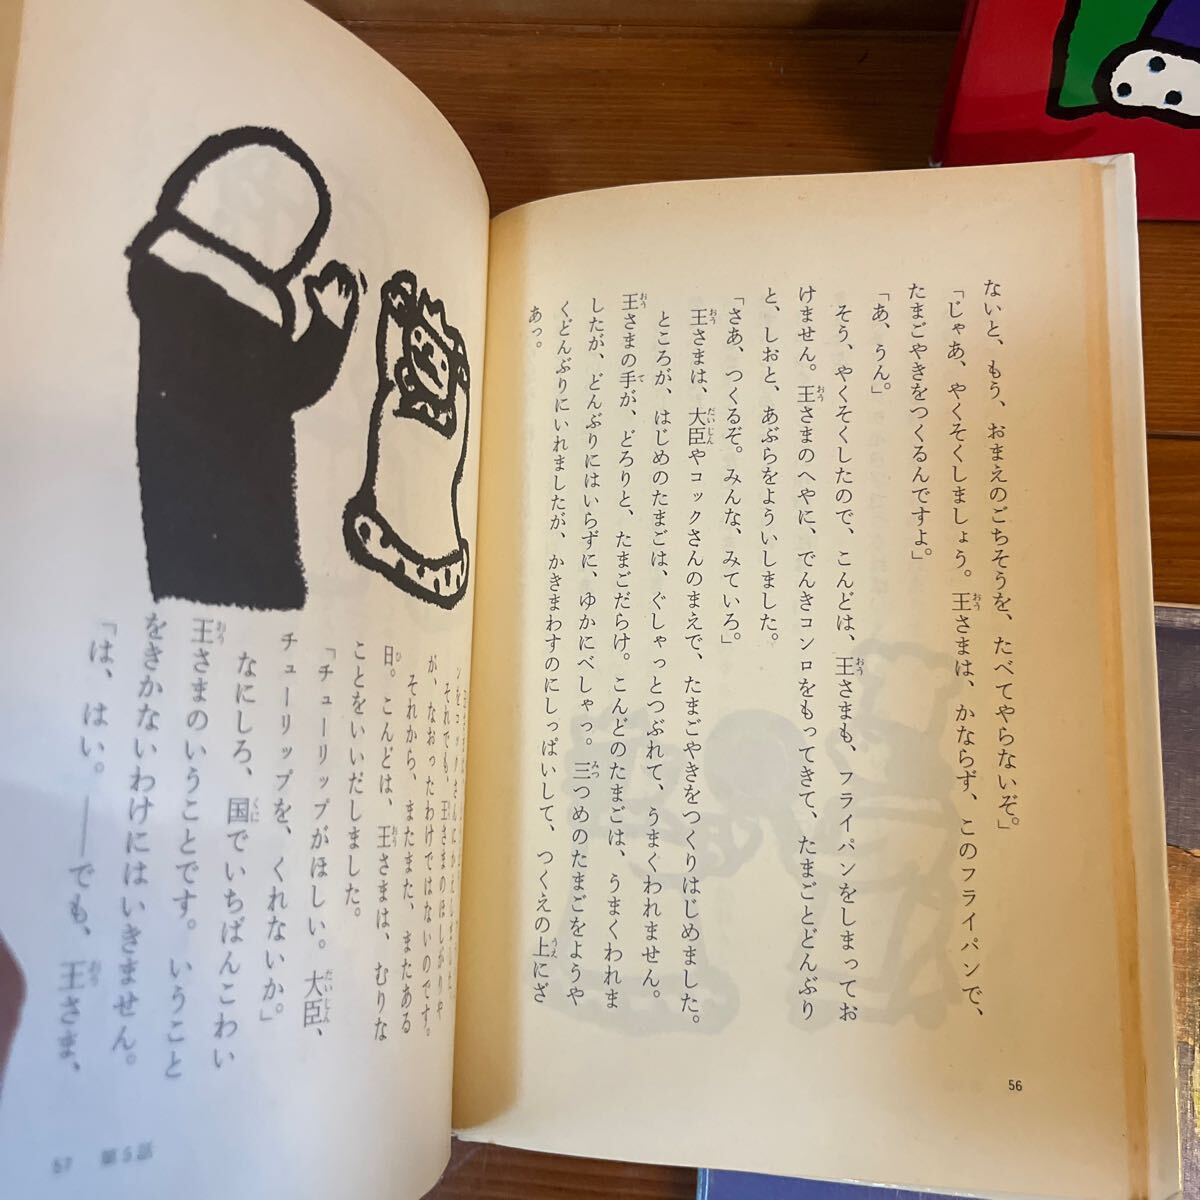 ないと、もう、おまえのごちそうを、たべてやらないぞ。」
「じゃあ、やくそくしましょう。王さまは、かならず、このフライパンで、
たまごやきをつくるんですよ。」
「あ、うん。」
そう、やくそくしたので、こんどは、王さまも、フライパンをしまってお
けません。王さまのへやに、でんきコンロをもってきて、たまごとどんぶり
と、しおと、あぶらをよういしました。
「さあ、つくるぞ。みんな、みていろ。」
王さまは、大臣やコックさんのまえで、たまごやきをつくりはじめました。
ところが、はじめのたまごは、ぐしゃっとつぶれて、うまくわれません。
王さまの手が、どろりと、たまごだらけ。こんどのたまごは、うまくわれま
したが、どんぶりにはいらずに、ゆかにべしゃっ。三つめのたまごをようや
くどんぶりにいれましたが、かきまわすのにしっぱいして、つくえの上にざ
あっ。
56
ンをコックさんにかえしました。
それでも、王さまのほしがりや
が、なおったわけではないのです。
それから、またまた、またある
日。こんどは、王さまは、むりな
ことをいいだしました。
「チューリップがほしい。大臣、
チューリップを、くれないか。」
なにしろ、国でいちばんこわい
王さまのいうことです。いうこと
をきかないわけにはいきません。
「は、はい。――でも、王さま、
57 第5話